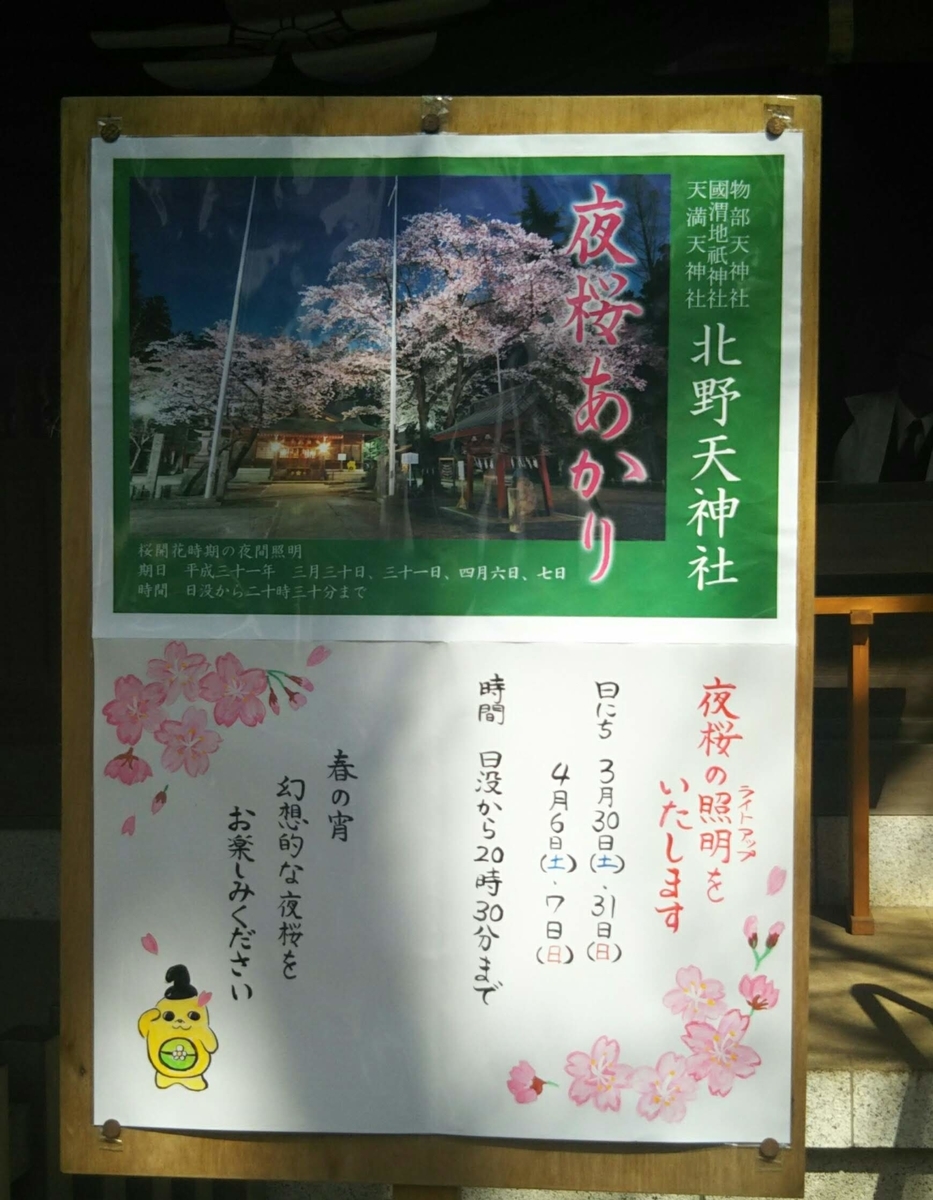 物部天神社
國渭地祇神社
天満天神社
北野天神社
夜桜あかり
桜開花時期の夜間照明
期日 平成三十一年 三月三十日、三十一日、四月六日、七日
時間 日没から二十時三十分まで
夜桜の照明を
ライトアップ
いたします
日にち 3月30日(土)・31日(日)
4月6日(土)・7日(日)
時間 日没から20時30分まで
春の宵
幻想的な夜桜を
お楽しみください